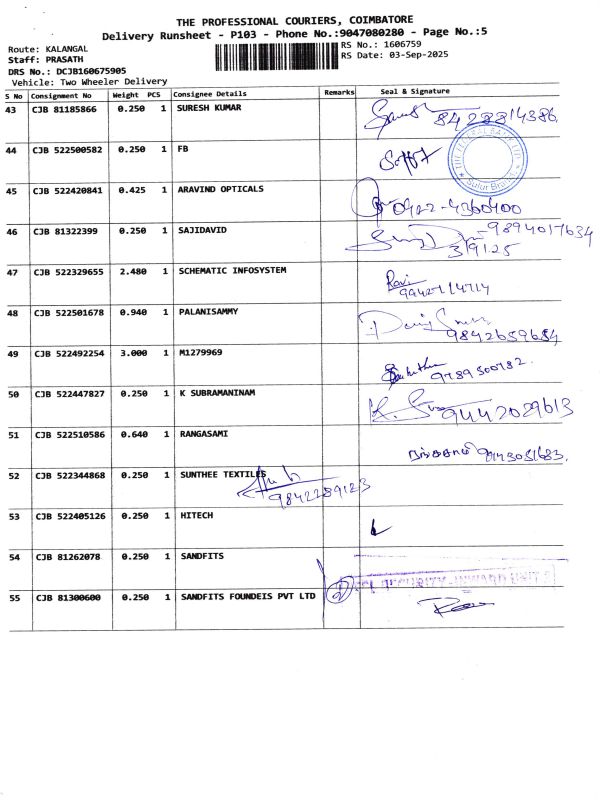 THE PROFESSIONAL COURIERS, COIMBATORE
Delivery Runsheet - P103 - Phone No.:9047080280 - Page No.:5
Route: KALANGAL
RS No.: 1606759
Staff: PRASATH
RS Date: 03-Sep-2025
DRS No.: DCJB160675905
Vehicle: Two Wheeler Delivery
S No Consignment No Weight PCS Consignee Details Remarks Seal & Signature
43 CJB 81185866 0.250 1 SURESH KUMAR 8428814386
44 CJB 522500582 0.250 1 FB
THE FEDERAL BANK LTD. * Sulur Branch *
45 CJB 522420841 0.425 1 ARAVIND OPTICALS 0422-4360400
46 CJB 81322399 0.250 1 SAJIDAVID 9894017634
3/9/25
47 CJB 522329655 2.480 1 SCHEMATIC INFOSYSTEM Ravi
9942714714
48 CJB 522501678 0.940 1 PALANISAMMY
9842659684
49 CJB 522492254 3.000 1 M1279969 9789500782.
50 CJB 522447827 0.250 1 K SUBRAMANINAM 9442029613
51 CJB 522510586 0.640 1 RANGASAMI
52 CJB 522344868 0.250 1 SUNTHEE TEXTILES
9842289123
53 CJB 522405126 0.250 1 HITECH
54 CJB 81262078 0.250 1 SANDFITS
55 CJB 81300600 0.250 1 SANDFITS FOUNDEIS PVT LTD